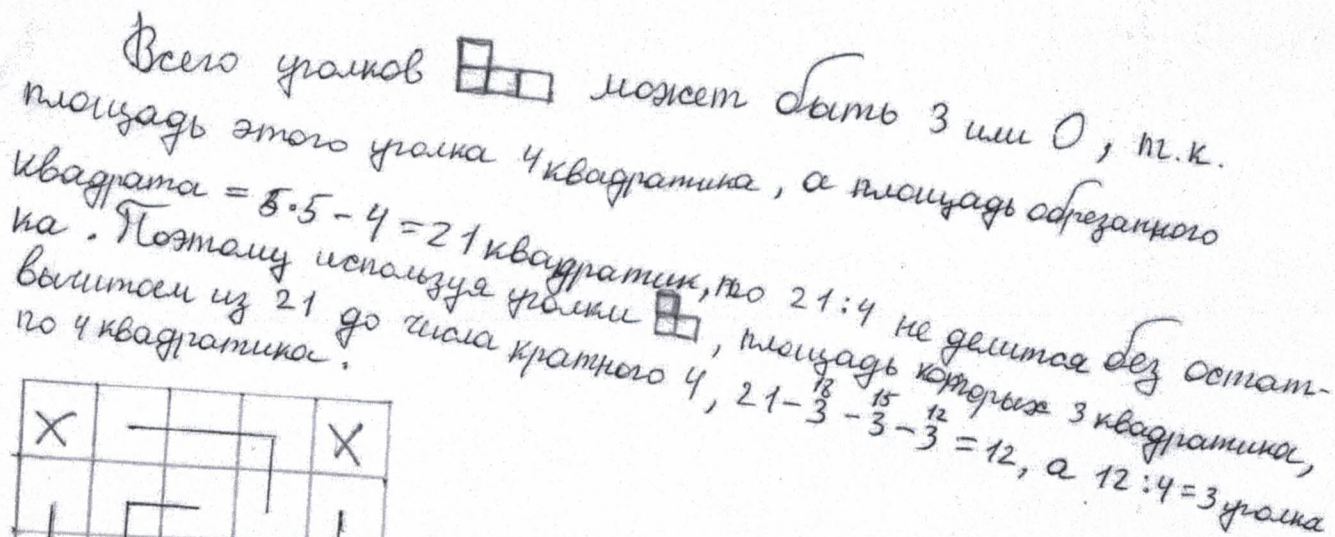 Всего уголков может быть 3 или 0, т.к.
площадь этого уголка 4 квадратика, а площадь обрезанного
квадрата = 5·5 - 4 = 21 квадратик, но 21:4 не делится без остат-
ка. Поэтому используя уголки, площадь которых 3 квадратика,
вычитаем из 21 до числа кратного 4, 21 - 3 - 3 - 3 = 12, а 12:4 = 3 уголка
18 15 12
по 4 квадратика.
X X